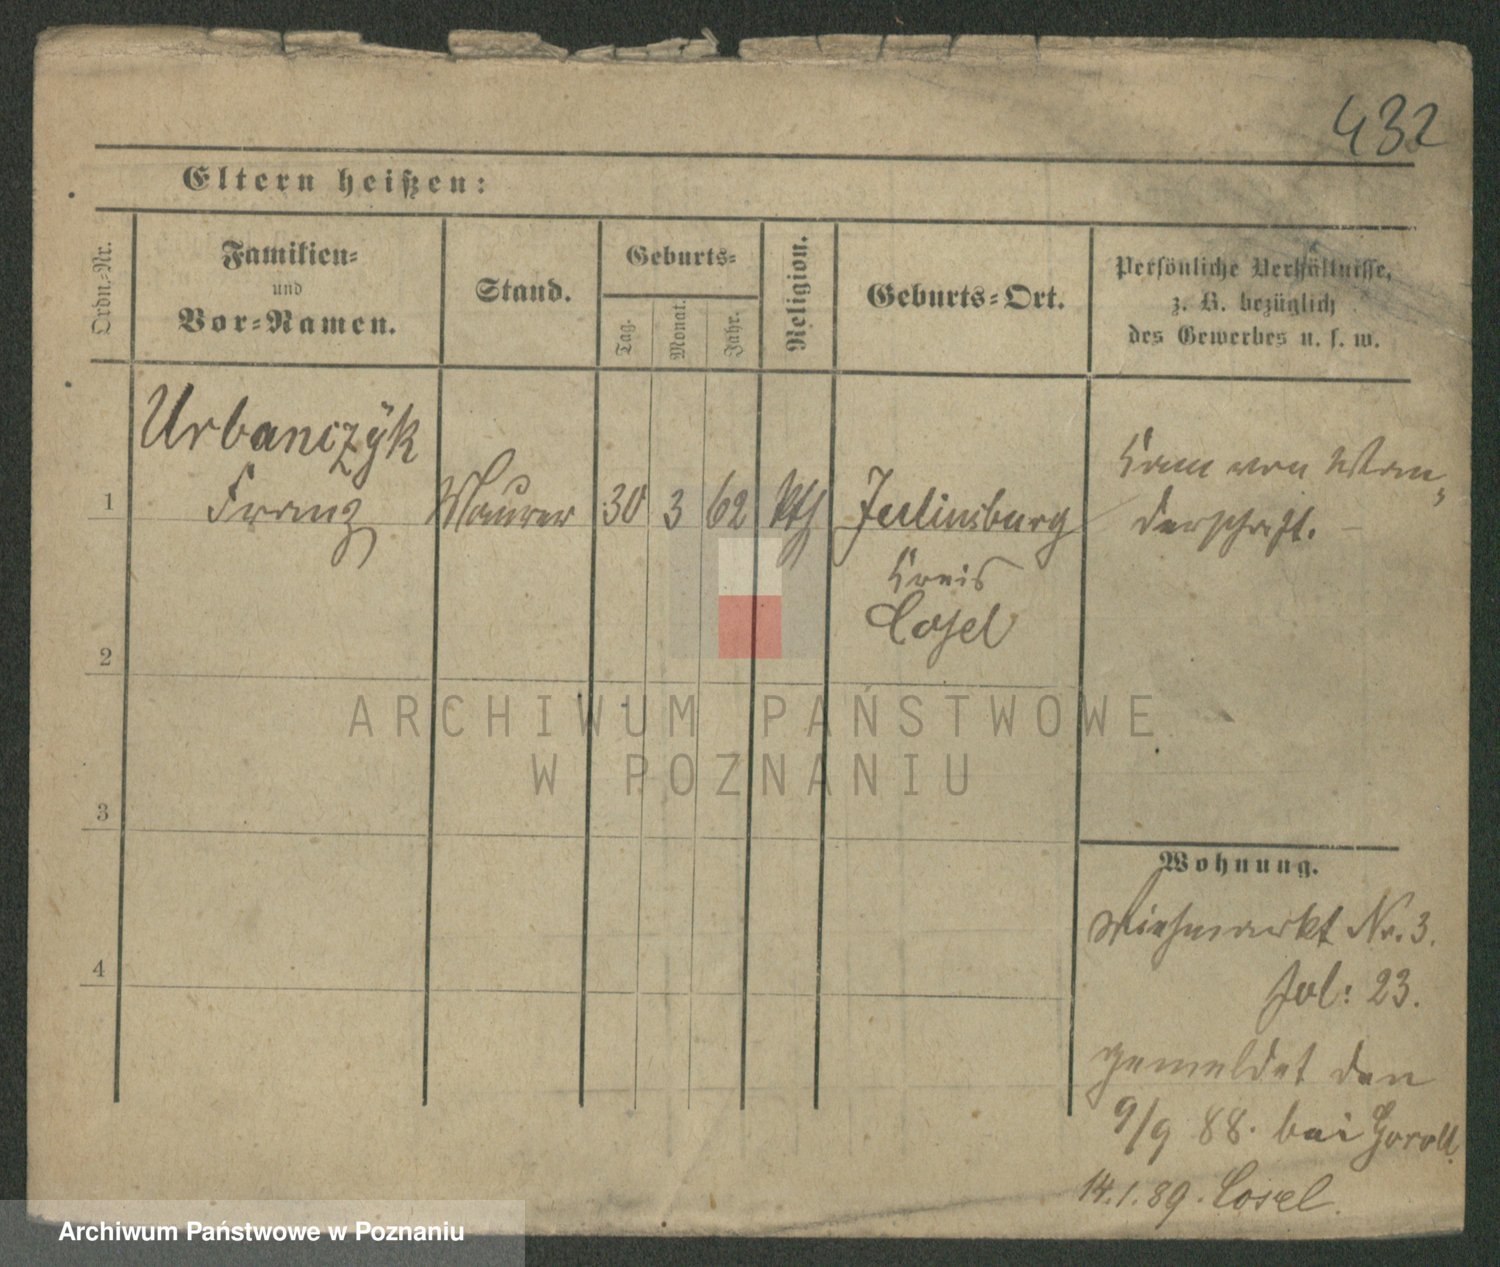 432
Eltern heißen:
Ordn.-Nr.
Familien-
und
Vor-Namen.
Stand.
Geburts-
Tag.
Monat.
Jahr.
Religion.
Geburts-Ort.
Persönliche Verhältnisse,
z. B. bezüglich
des Gewerbes u. s. w.
Urbanczÿk
1 Franz Maurer 30 3 62 kth Juliusburg
Kreis
Cosel
Kam von Wan-
derschaft.
2
3
4
Wohnung.
Viehmarkt Nr. 3.
fol: 23.
gemeldet den
9/9 88. bei
14.1.89. Cosel.
ARCHIWUM PAŃSTWOWE
W POZNANIU
Archiwum Państwowe w Poznaniu